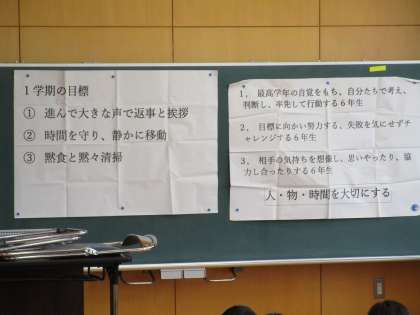 1学期の目標
① 進んで大きな声で返事と挨拶
② 時間を守り、静かに移動
③ 黙食と黙々清掃
1、最高学年の自覚をもち、自分たちで考え、
判断し、率先して行動する6年生
2、目標に向かい努力する、失敗を気にせずチ
ャレンジする6年生
3、相手の気持ちを想像し、思いやったり、協
力し合ったりする6年生
人・物・時間を大切にする